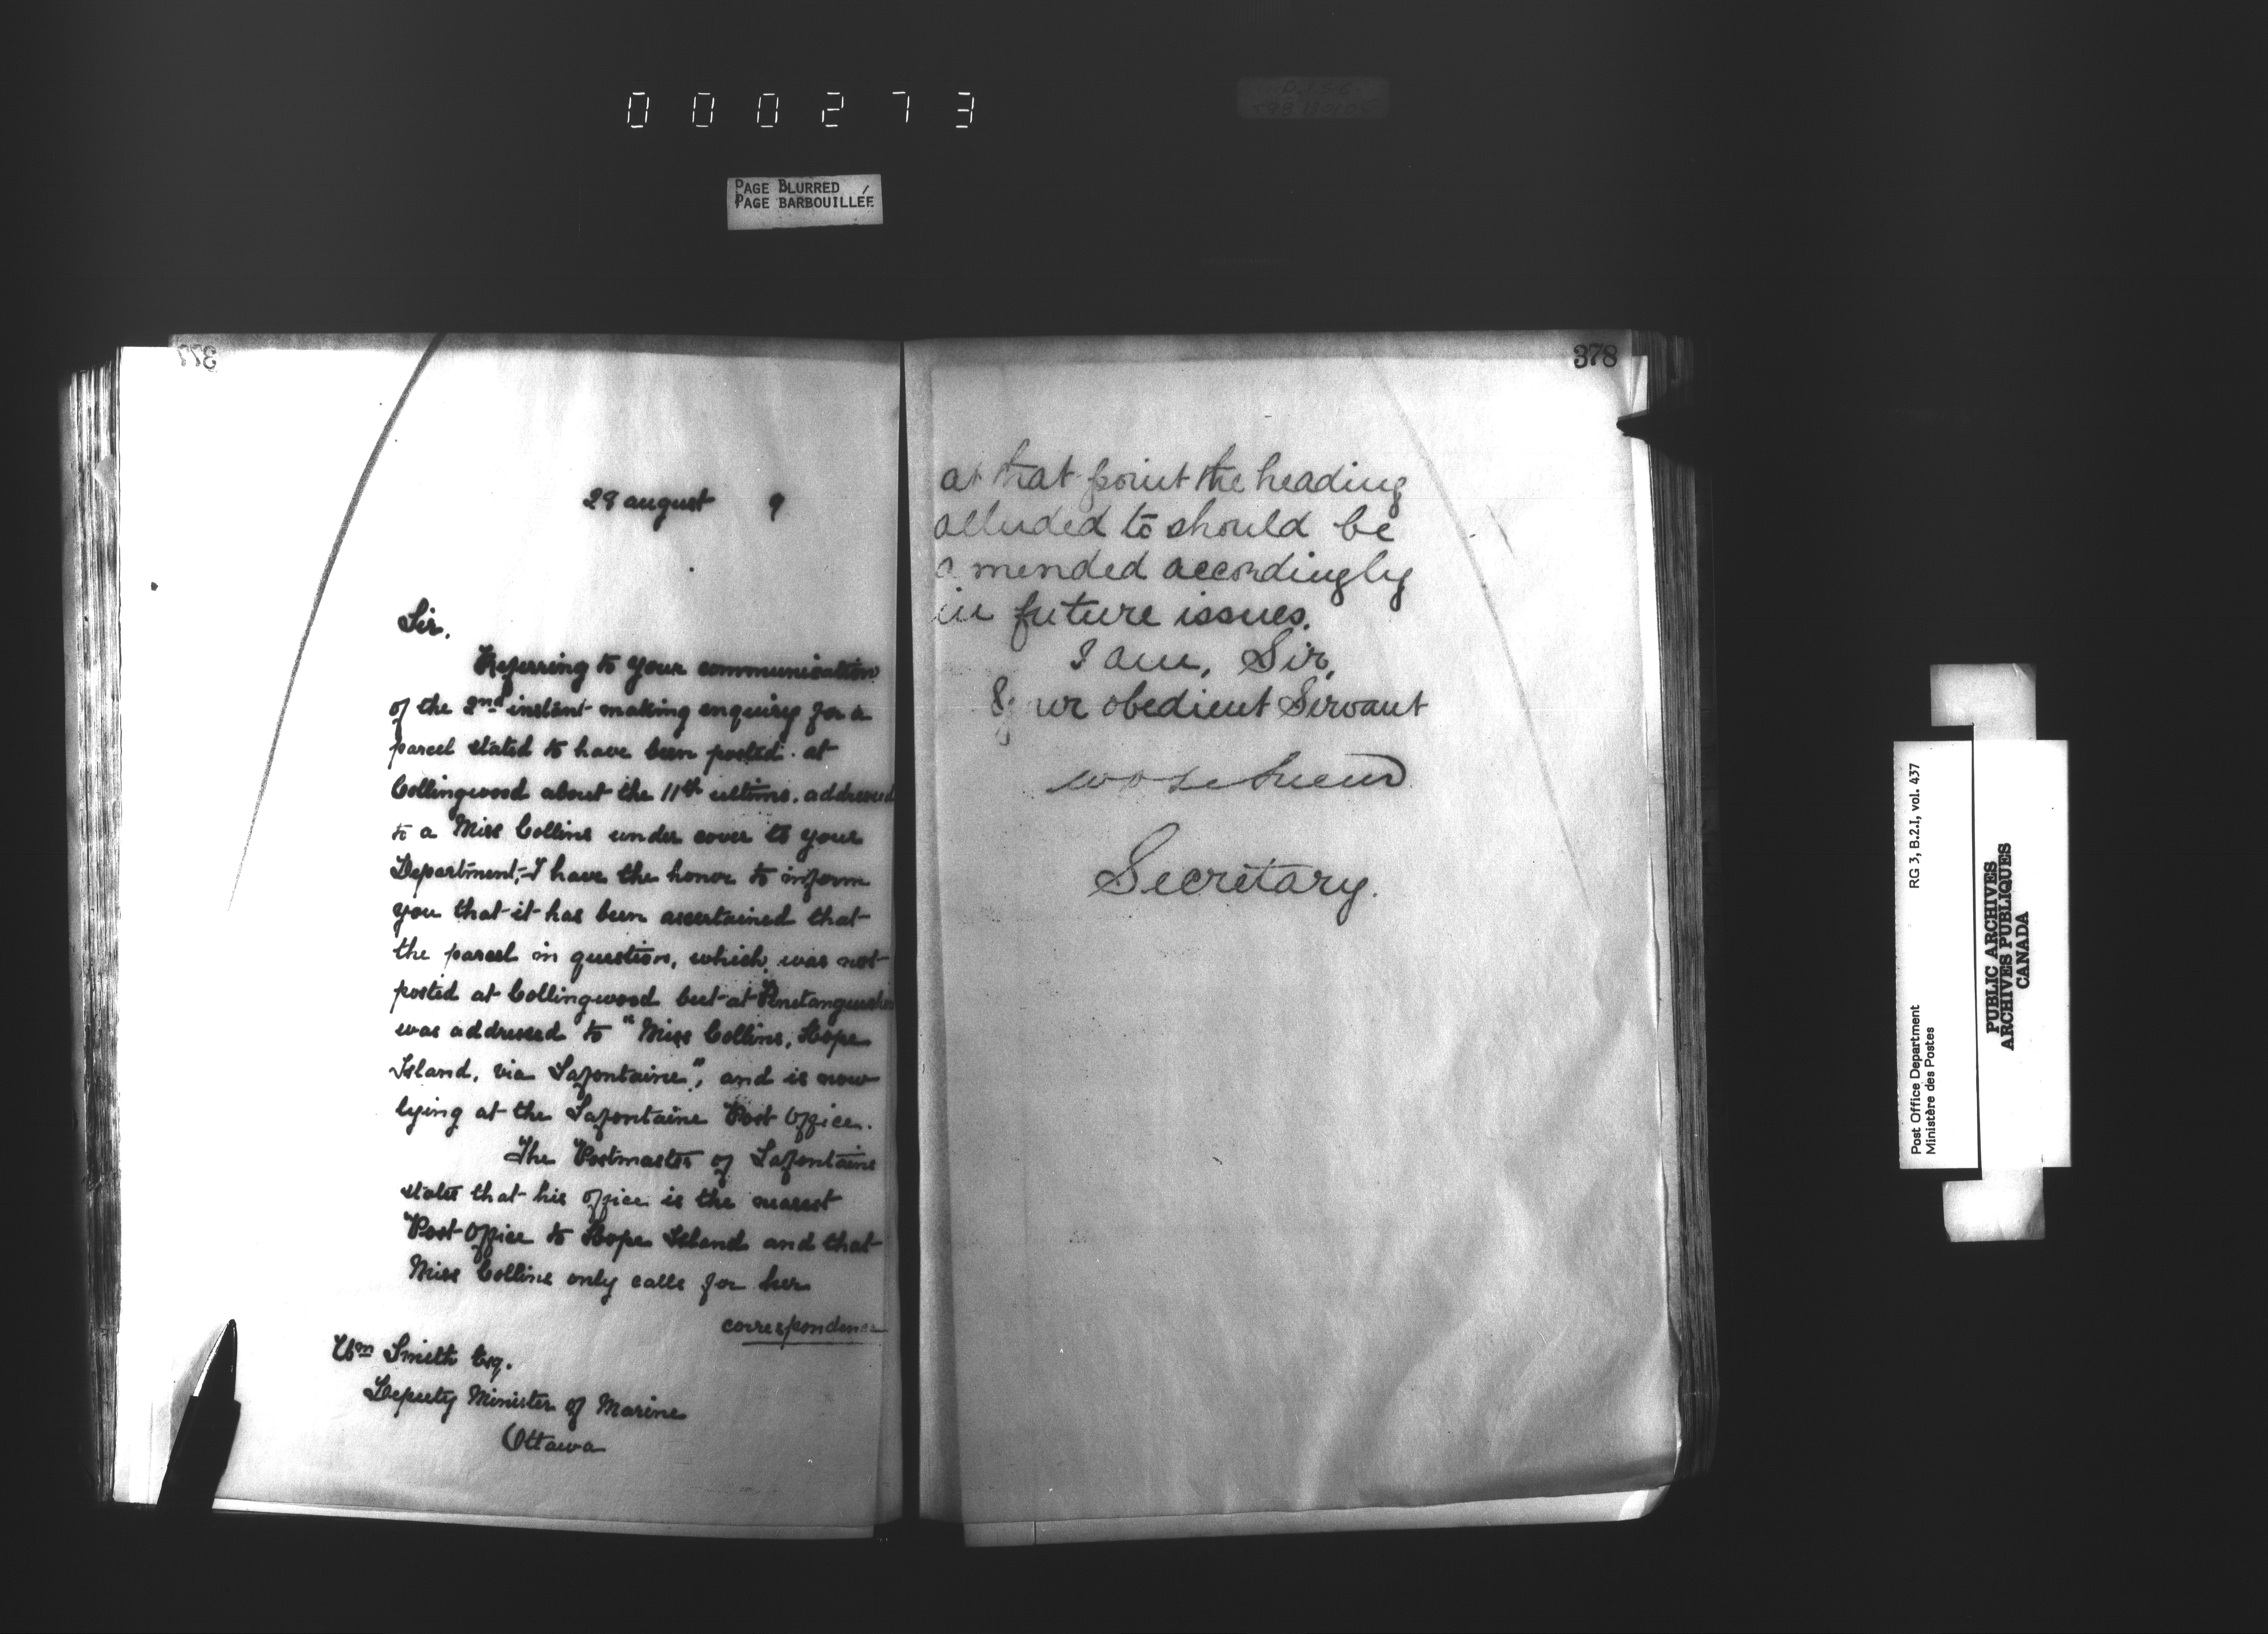 000273
PAGE BLURRED
PAGE BARBOUILLÉE
377
28 august 9
Sir.
Referring to your communication
of the 2nd instant making enquiry for a
parcel stated to have been posted at
Collingwood about the 11th ultimo. addressed
to a Miss Collins under cover to your
Department,- I have the honor to inform
you that it has been ascertained that
the parcel in question, which was not
posted at Collingwood but at Penetanguishene
was addressed to "Miss Collins, Hope
Island, via Lafontaine", and is now
lying at the Lafontaine Post Office.
The Postmaster of Lafontaine
states that his office is the nearest
Post Office to Hope Island and that
Miss Collins only calls for her
correspondence
Wm Smith Esq.
Deputy Minister of Marine
Ottawa
378
at that point the heading
alluded to should be
amended accordingly
in future issues.
I am, Sir,
Your obedient Servant
Secretary.
Post Office Department
Ministère des Postes
RG 3, B.2.I, vol. 437
PUBLIC ARCHIVES
ARCHIVES PUBLIQUES
CANADA